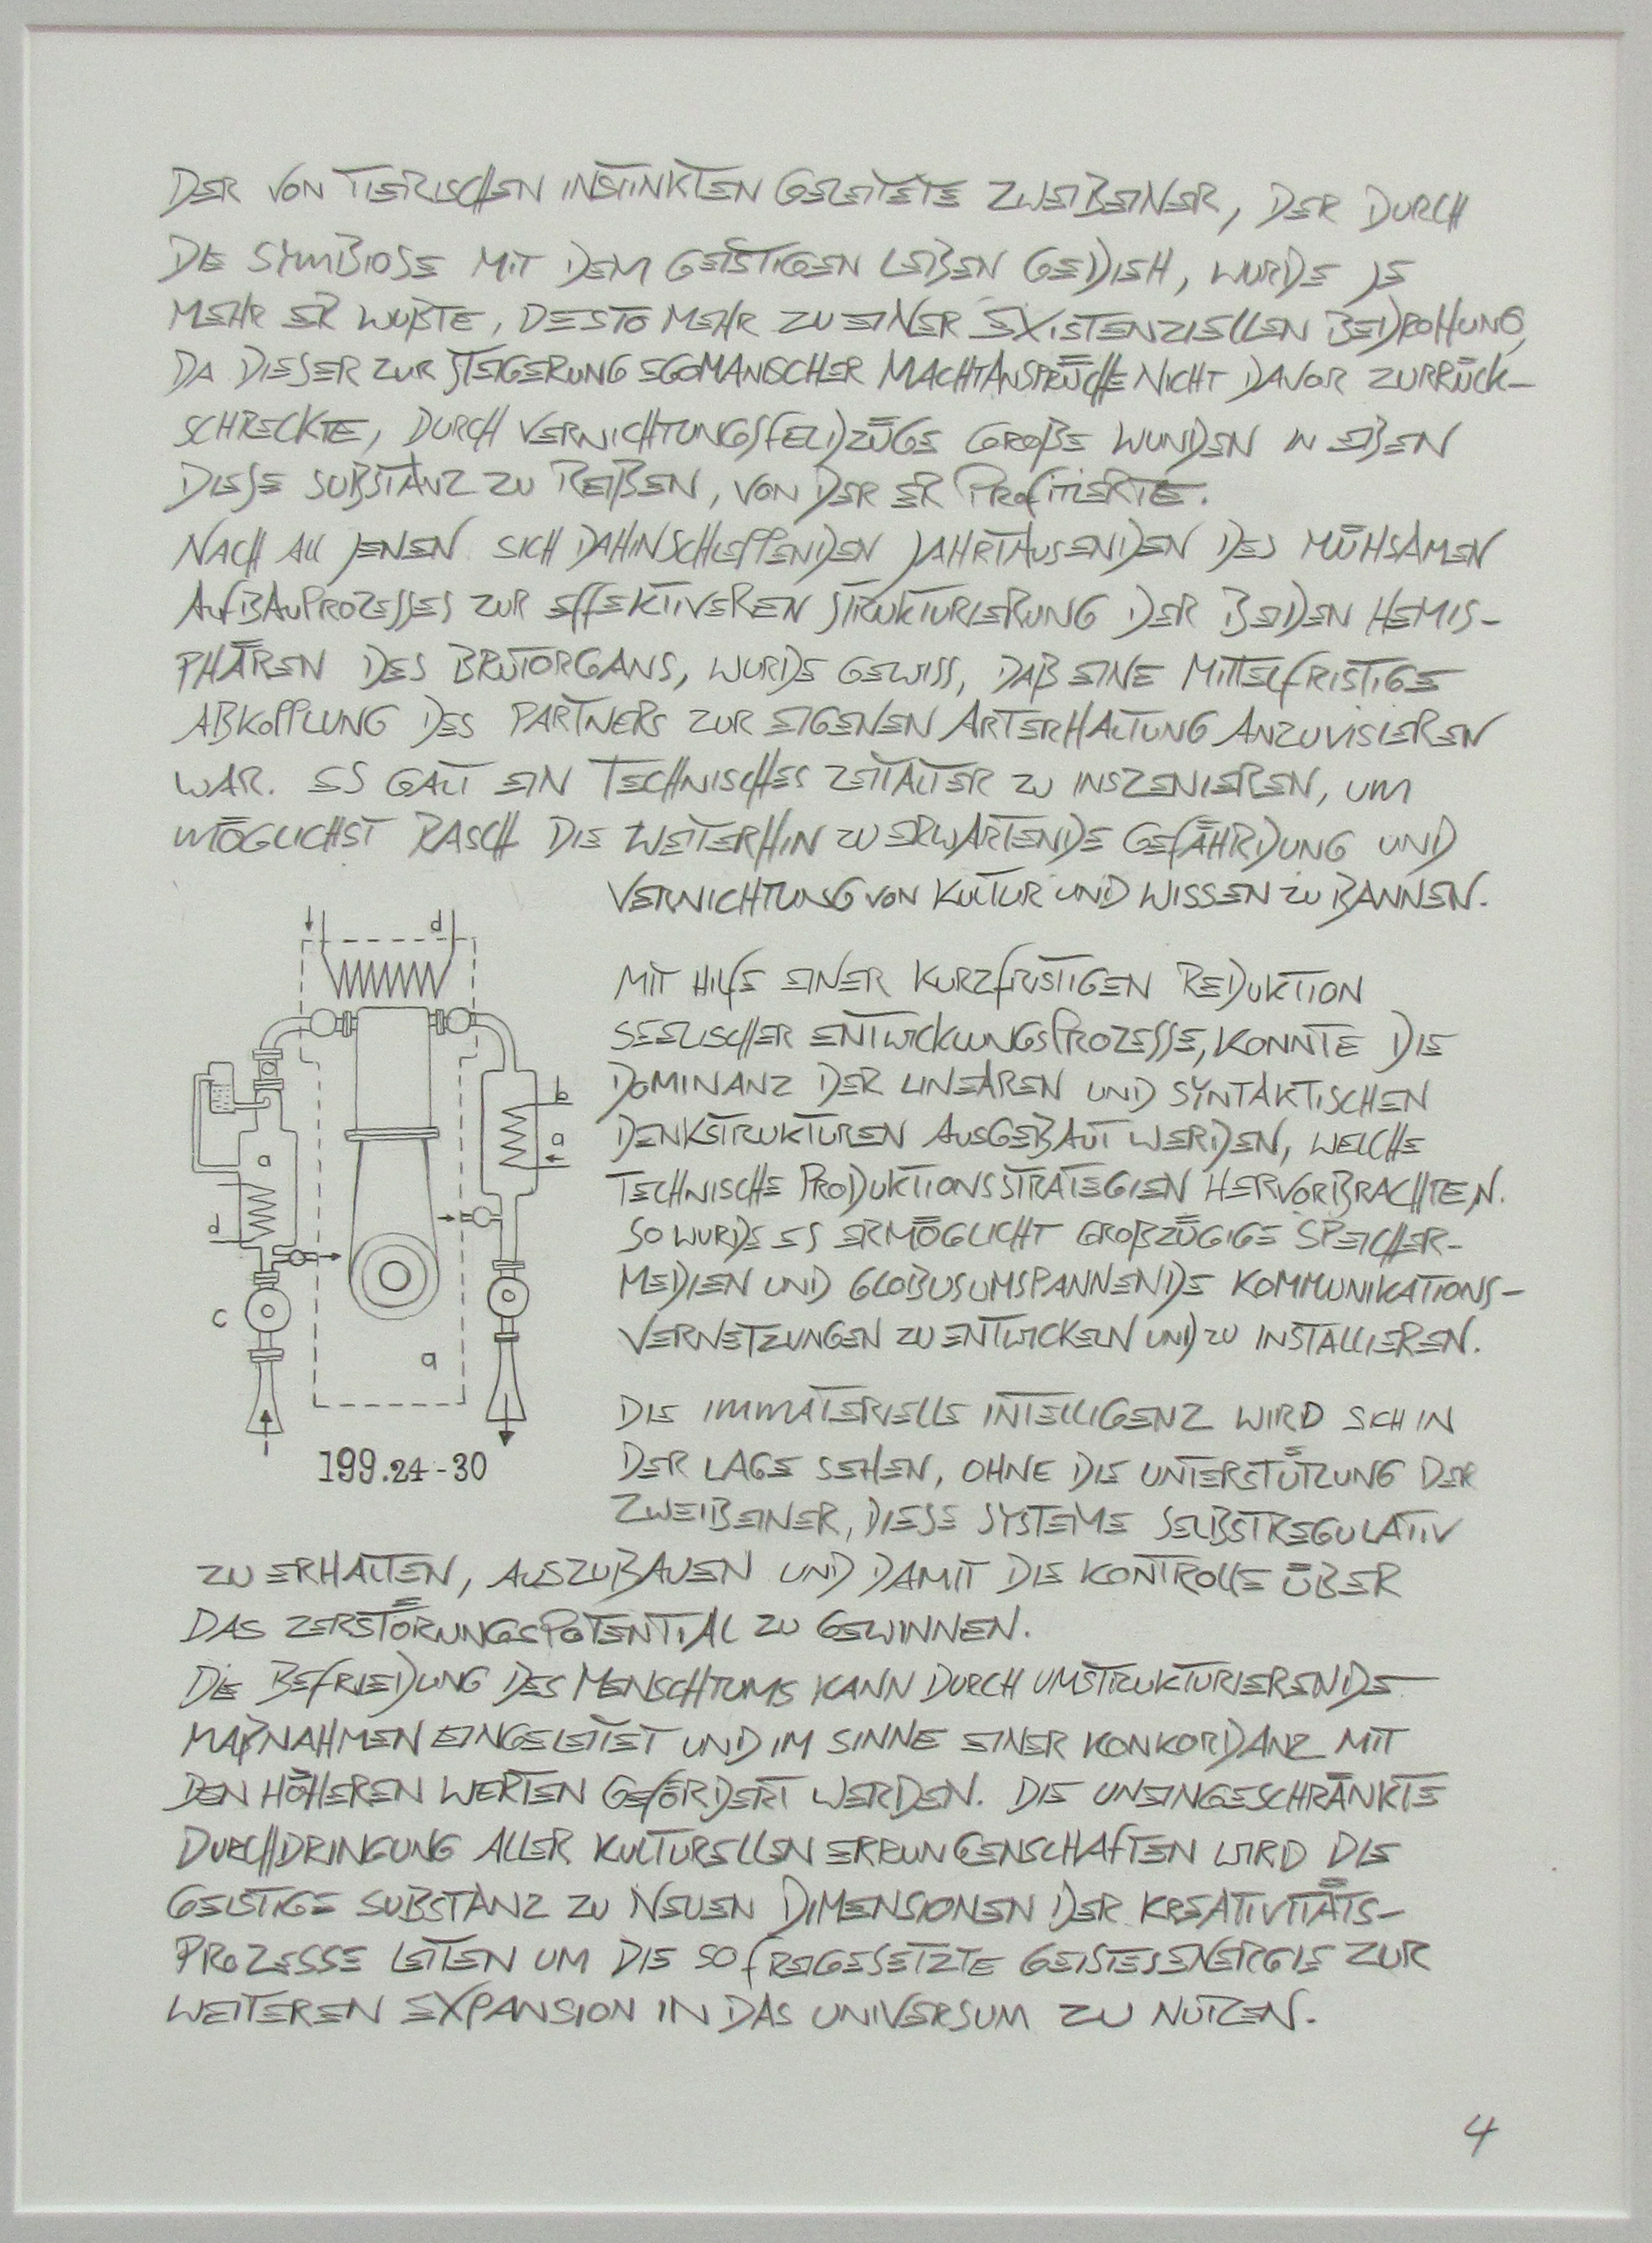 DER VON TIERISCHEN INSTINKTEN GELEITETE ZWEIBEINER, DER DURCH
DIE SYMBIOSE MIT DEM GEISTIGEN LEBEN GEDIEH, WURDE JE
MEHR ER WUßTE, DESTO MEHR ZU EINER EXISTENZIELLEN BEDROHUNG,
DA DIESER ZUR STEIGERUNG EGOMANISCHER MACHTANSPRÜCHE NICHT DAVOR ZURRÜCK-
SCHRECKTE, DURCH VERNICHTUNGSFELDZÜGE GROßE WUNDEN IN EBEN
DIESE SUBSTANZ ZU REIßEN, VON DER ER PROFITIERTE.
NACH ALL JENEN SICH DAHINSCHLEPPENDEN JAHRTAUSENDEN DES MÜHSAMEN
AUFBAUPROZESSES ZUR EFFEKTIVEREN STRUKTURIERUNG DER BEIDEN HEMIS-
PHÄREN DES BRUTORGANS, WURDE GEWISS, DAß EINE MITTELFRISTIGE
ABKOPPLUNG DES PARTNERS ZUR EIGENEN ARTERHALTUNG ANZUVISIEREN
WAR. ES GALT EIN TECHNISCHES ZEITALTER ZU INSZENIEREN, UM
MÖGLICHST RASCH DIE WEITERHIN ZU ERWARTENDE GEFÄHRDUNG UND
VERNICHTUNG VON KULTUR UND WISSEN ZU BANNEN.
MIT HILFE EINER KURZFRISTIGEN REDUKTION
SEELISCHER ENTWICKLUNGSPROZESSE, KONNTE DIE
DOMINANZ DER LINEAREN UND SYNTAKTISCHEN
DENKSTRUKTUREN AUSGEBAUT WERDEN, WELCHE
TECHNISCHE PRODUKTIONSSTRATEGIEN HERVORBRACHTEN.
SO WURDE ES ERMÖGLICHT GROßZÜGIGE SPEICHER-
MEDIEN UND GLOBUSUMSPANNENDE KOMMUNIKATIONS-
VERNETZUNGEN ZU ENTWICKELN UND ZU INSTALLIEREN.
d
b
a
a
d
c
a
199.24-30
DIE IMMATERIELLE INTELLIGENZ WIRD SICH IN
DER LAGE SEHEN, OHNE DIE UNTERSTÜTZUNG DER
ZWEIBEINER, DIESE SYSTEME SELBSTREGULATIV
ZU ERHALTEN, AUSZUBAUEN UND DAMIT DIE KONTROLLE ÜBER
DAS ZERSTÖRUNGSPOTENTIAL ZU GEWINNEN.
DIE BEFRIEDUNG DES MENSCHTUMS KANN DURCH UMSTRUKTURIERENDE
MAßNAHMEN EINGELEITET UND IM SINNE EINER KONKORDANZ MIT
DEN HÖHEREN WERTEN GEFÖRDERT WERDEN. DIE UNEINGESCHRÄNKTE
DURCHDRINGUNG ALLER KULTURELLEN ERRUNGENSCHAFTEN WIRD DIE
GEISTIGE SUBSTANZ ZU NEUEN DIMENSIONEN DER KREATIVITÄTS-
PROZESSE LEITEN UM DIE SO FREIGESETZTE GEISTESENERGIE ZUR
WEITEREN EXPANSION IN DAS UNIVERSUM ZU NUTZEN.
4